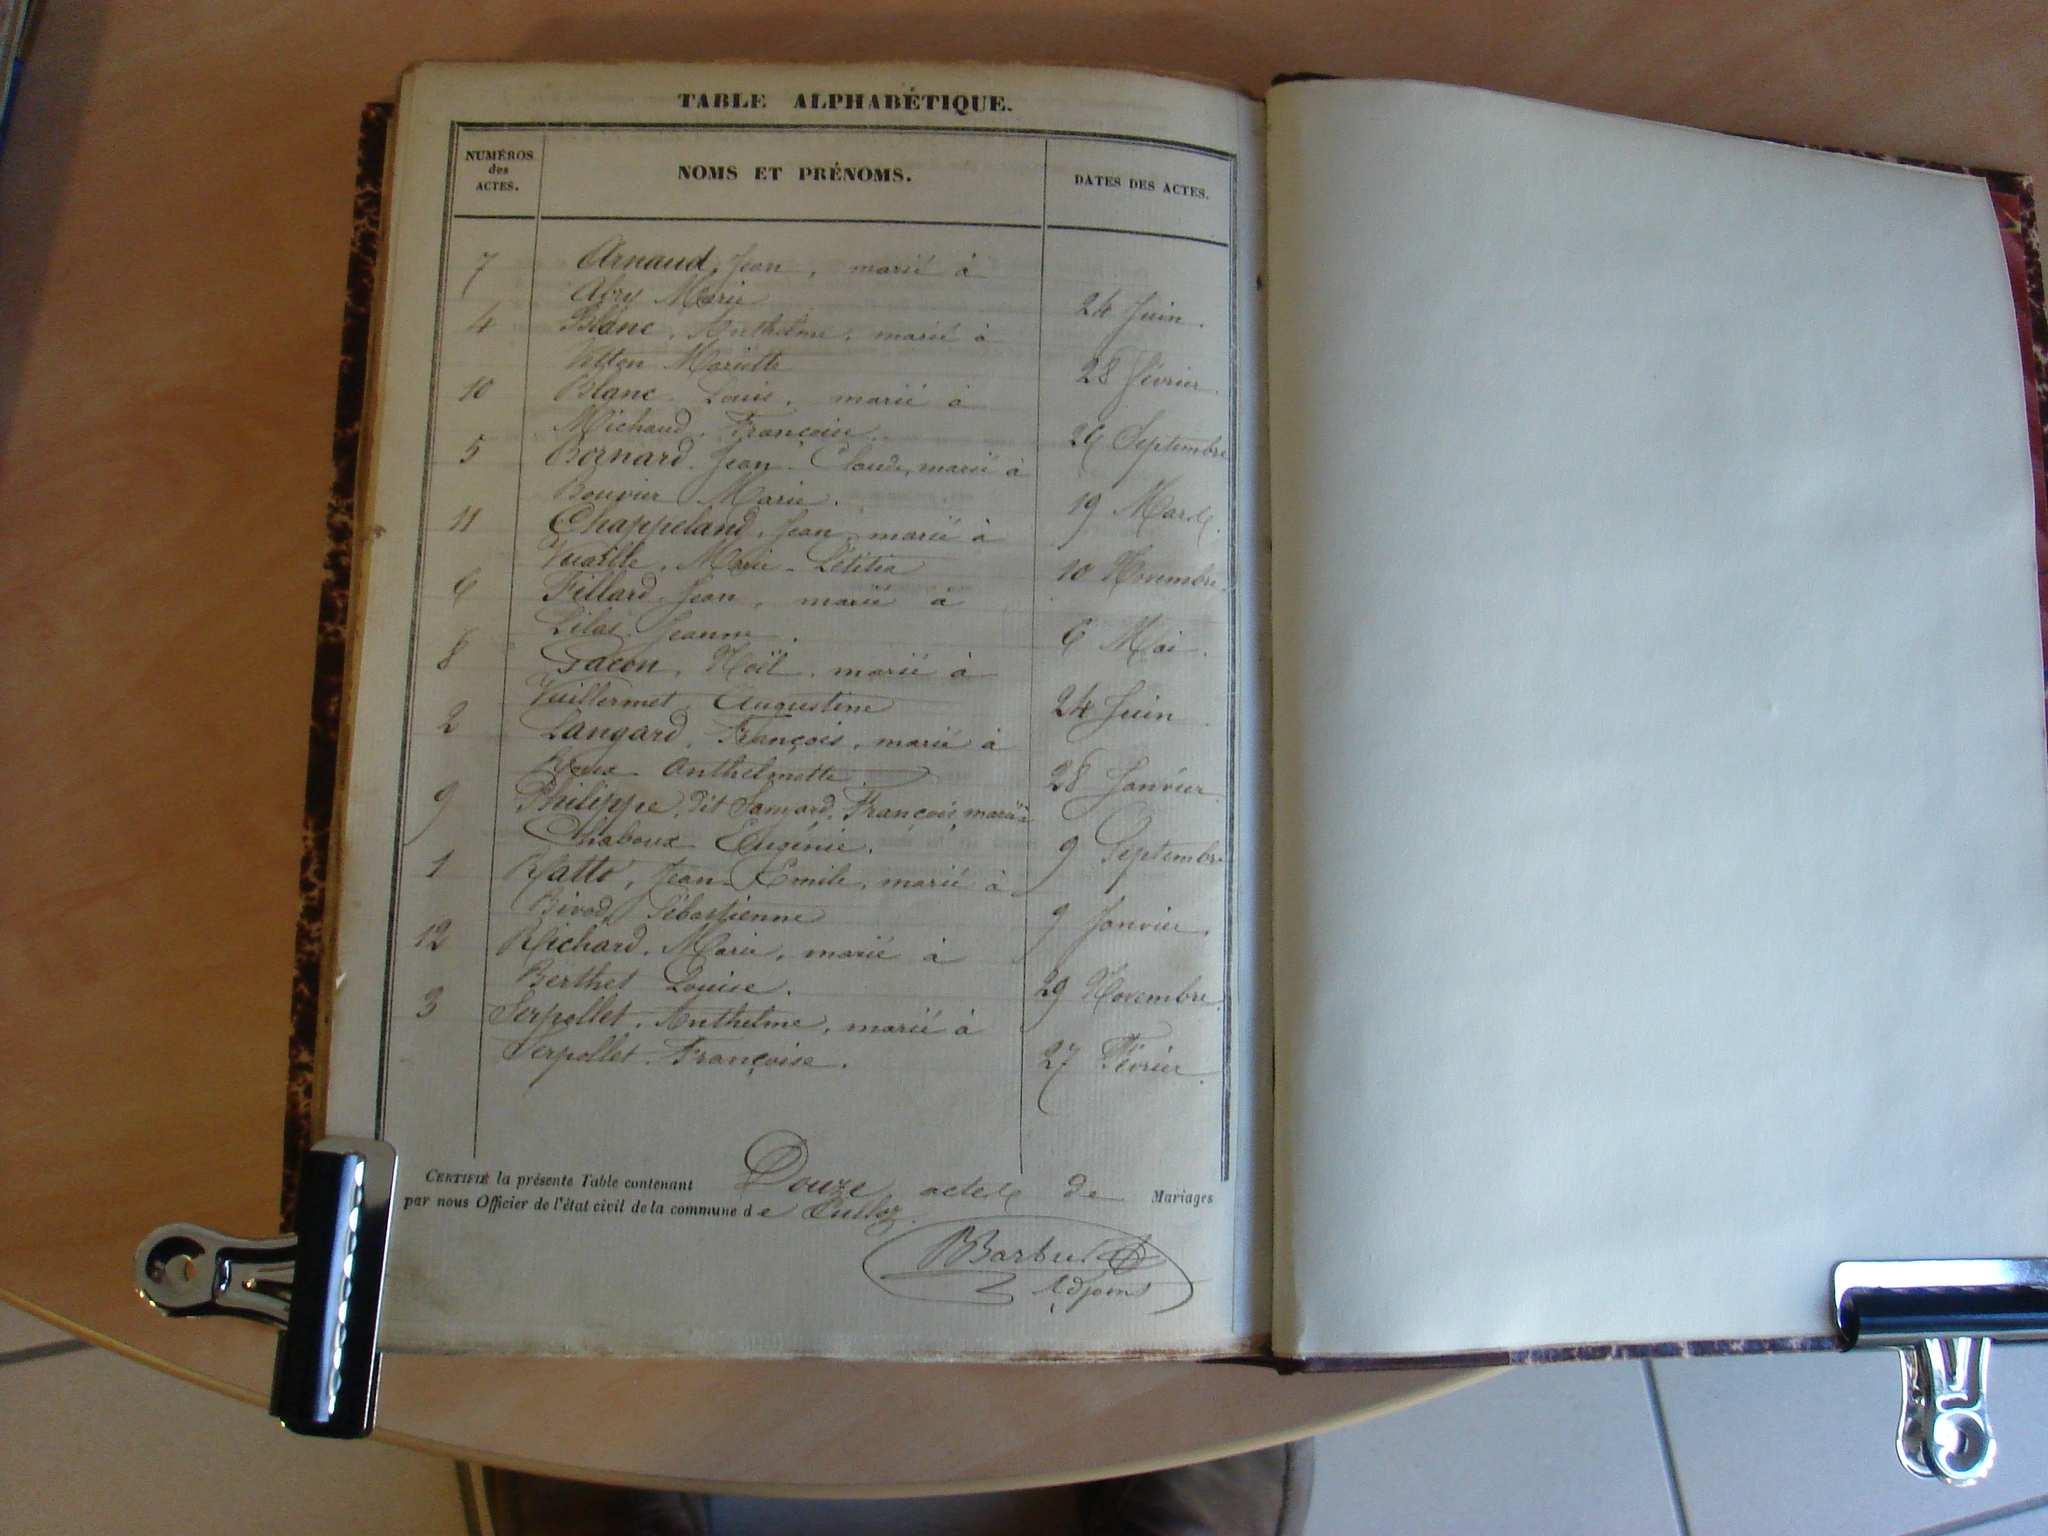 TABLE ALPHABÉTIQUE.
NUMÉROS des ACTES.
NOMS ET PRÉNOMS.
DATES DES ACTES.
7 Arnaud, Jean, marié à
Abry Marie 24 Juin.
4 Blanc, Anthelme, marié à
Mariette 28 Février.
10 Blanc Louis, marié à
Michaud, Françoise 26 Septembre
5 Bornard, Jean-Claude, marié à
Bouvier Marie. 19 Mars.
11 Chappeland, Jean, marié à
Vuaille, Marie-Létitia 10 Novembre.
6 Fillard, Jean, marié à
Lilas Jeanne. 6 Mai.
8 Gacon, Noël, marié à
Vuillermet, Augustine 24 Juin.
2 Langard, François, marié à
Roux Anthelmette. 28 Janvier.
9 Philippe, dit François, marié à
Chaboux Eugénie. 9 Septembre
1 Ratto, Jean-Emile, marié à
Sébastienne 9 Janvier.
12 Richard, Marie, marié à
Berthet Louise. 29 Novembre.
3 Serpollet, Anthelme, marié à
Serpollet Françoise. 27 Février.
CERTIFIÉ la présente Table contenant Douze actes de Mariages
par nous Officier de l'état civil de la commune de Culloz.
Adjoint